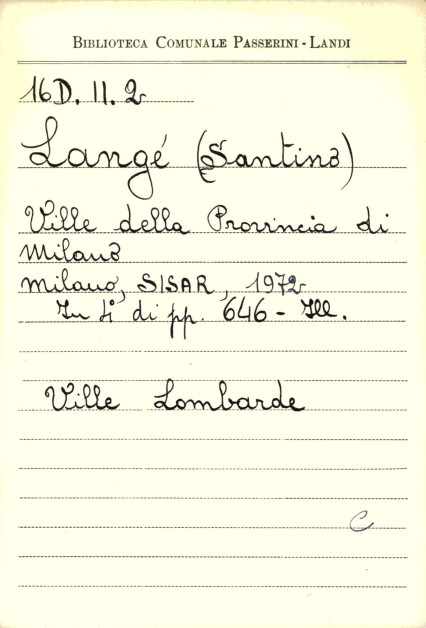 BIBLIOTECA COMUNALE PASSERINI - LANDI
16D. II. 2
Langé (Santino)
Ville della Provincia di
Milano
Milano, SISAR, 1972
In 4° di pp. 646 - Ill.
Ville Lombarde
C